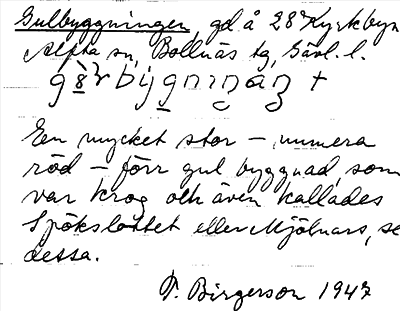 Gulbyggningen, gd å 28 Kyrkbyn
Alfta sn, Bollnäs tg, Gävl. l.
En mycket stor – numera
röd – förr gul byggnad, som
var krog och även kallades
Spökslottet eller Mjölnars, se
dessa.
P. Birgerson 1947